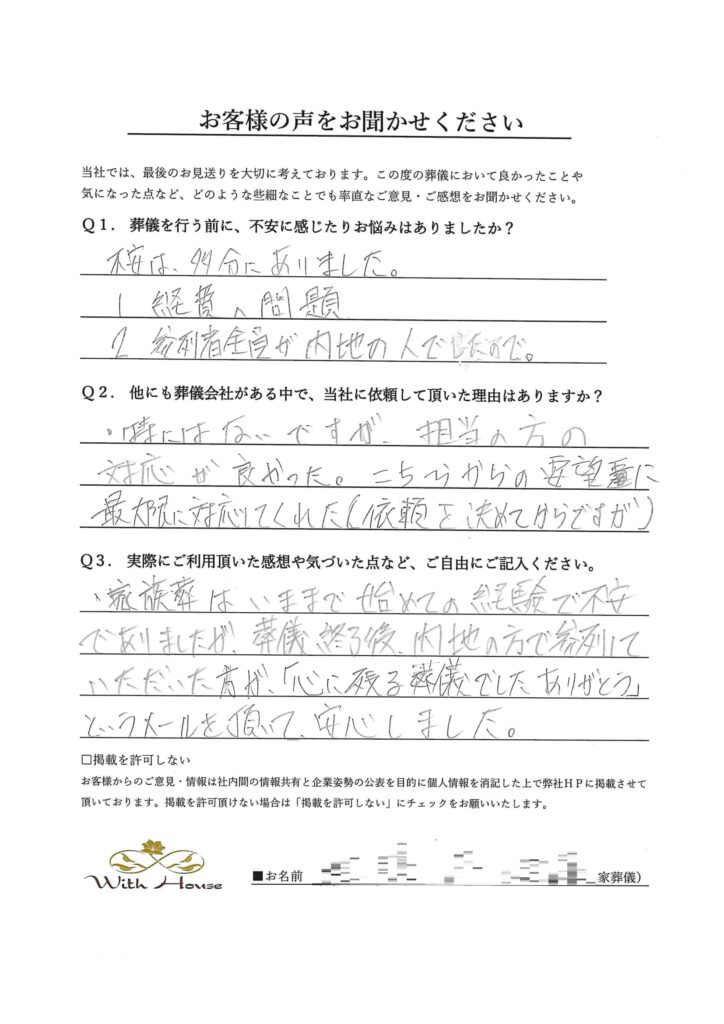 お客様の声をお聞かせください
当社では、最後のお見送りを大切に考えております。この度の葬儀において良かったことや
気になった点など、どのような些細なことでも率直なご意見・ご感想をお聞かせください。
Q1. 葬儀を行う前に、不安に感じたりお悩みはありましたか？
不安は、多分にありました。
1 経費の問題
2 参列者全員が内地の人で
Q2. 他にも葬儀会社がある中で、当社に依頼して頂いた理由はありますか？
・特にはないですが、担当の方の
対応が良かった。こちらからの要望に
最大限に対応してくれた(依頼を決めてからですが)
Q3. 実際にご利用頂いた感想や気づいた点など、ご自由にご記入ください。
・家族葬はいままで始めての経験で不安
でありましたが、葬儀終了後、内地の方で参列して
いただいた方が、「心に残る葬儀でしたありがとう」
というメールを頂いて、安心しました。
□掲載を許可しない
お客様からのご意見・情報は社内間の情報共有と企業姿勢の公表を目的に個人情報を消記した上で弊社ＨＰに掲載させて
頂いております。掲載を許可頂けない場合は「掲載を許可しない」にチェックをお願いいたします。
With House
■お名前
家葬儀）